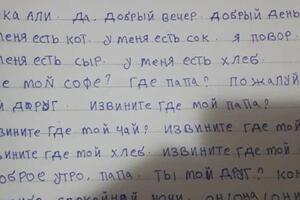 КА АЛИ. Да. Добрый вечер. Добрый день
меня есть кот. у меня есть сок. я повор
меня есть сыр. у меня есть хлеб.
де мой софе? Где папа? пожалуй
й друг. извините где мой папа?
вините где мой чай? извините где мой
вините где мой хлеб. извините где мой
оброе утро, папа. ты мой друг? кон
спокойнай ночи. он/она/они